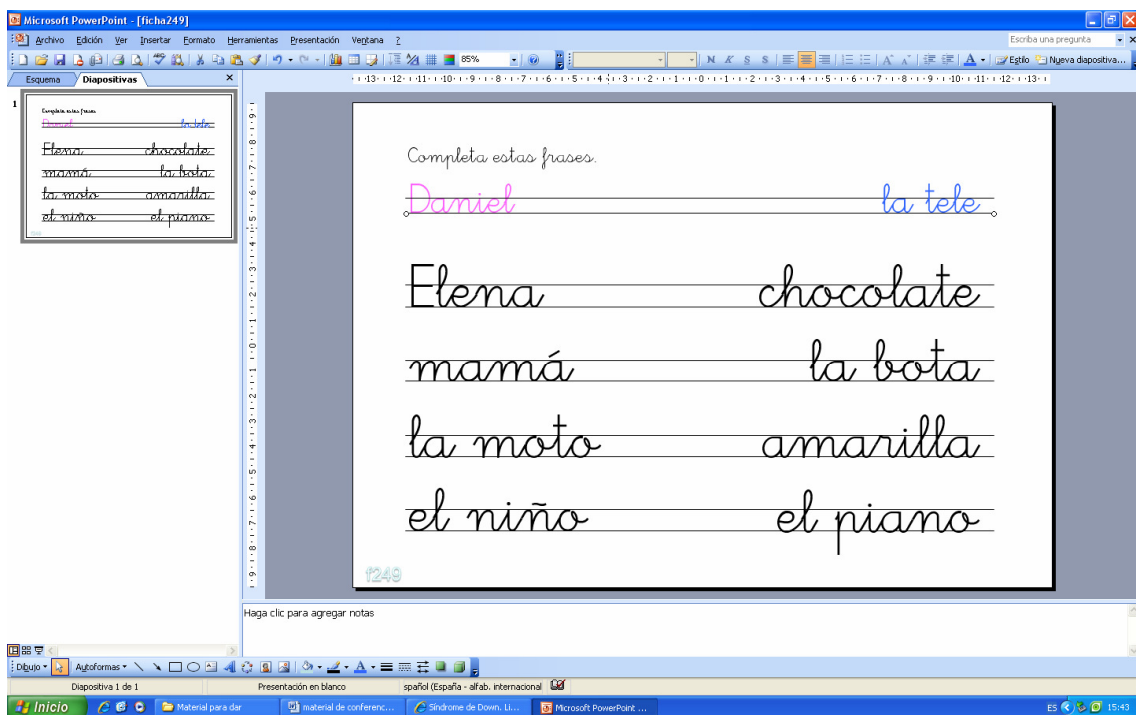 Microsoft PowerPoint - [ficha249]
Archivo Edición Ver Insertar Formato Herramientas Presentación Ventana ? Escriba una pregunta
85% N K S S Estilo Nueva diapositiva...
Esquema Diapositivas
·13·1·12·1·11·1·10·1·9·1·8·1·7·1·6·1·5·1·4·1·3·1·2·1·1·1·0·1·1·1·2·1·3·1·4·1·5·1·6·1·7·1·8·1·9·1·10·1·11·1·12·1·13·1
1
Completa estas frases
Daniel la tele
Elena chocolate
mamá la bota
la moto amarilla
el niño el piano
f249
Completa estas frases.
Daniel la tele
Elena chocolate
mamá la bota
la moto amarilla
el niño el piano
f249
Haga clic para agregar notas
Dibujo Autoformas
Diapositiva 1 de 1 Presentación en blanco spañol (España - alfab. internacional
Inicio Material para dar material de conferenc... Síndrome de Down. Li... Microsoft PowerPoint ... ES 15:43